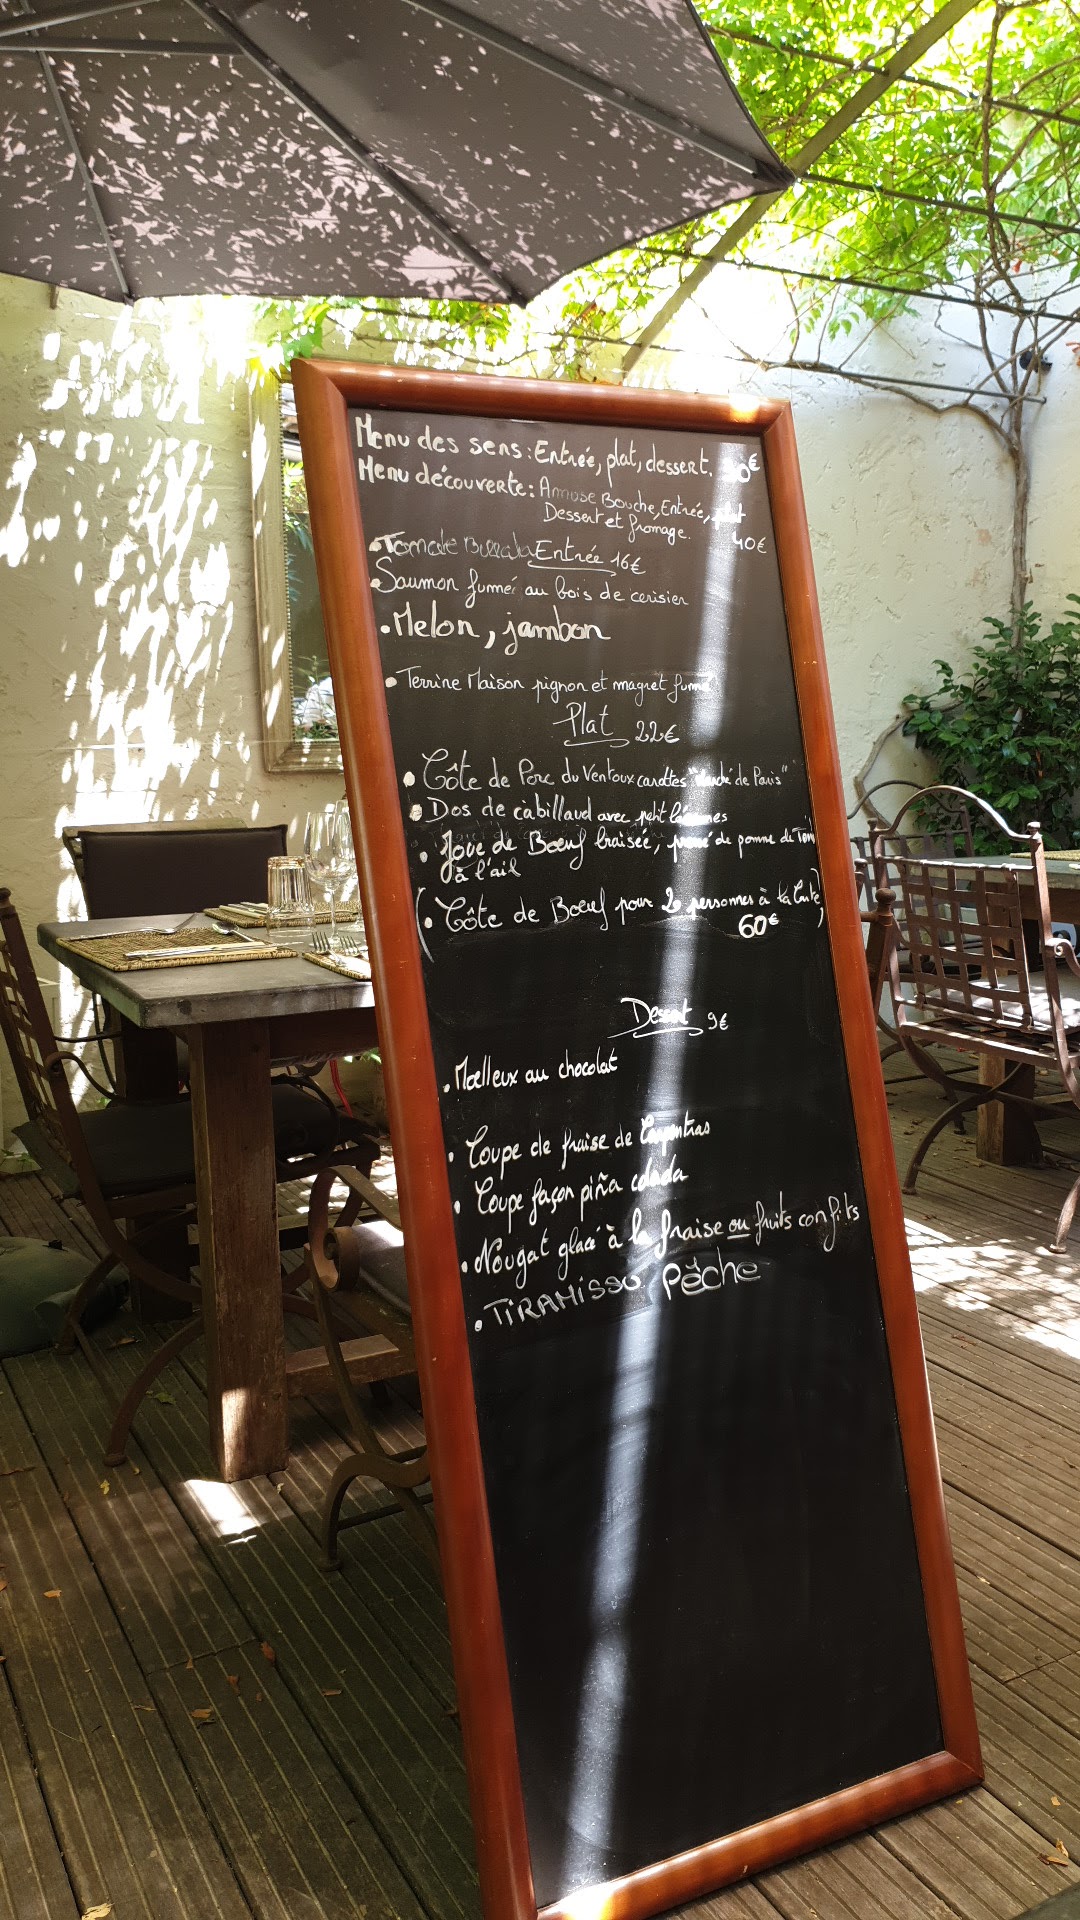 Menu des sens : Entrée, plat, dessert. 0€
Menu découverte : Amuse Bouche, Entrée, plat
Dessert et fromage. 40€
• Tomate Burrata Entrée 16€
• Saumon fumé au bois de cerisier
• Melon, jambon
• Terrine Maison pignon et magret fumé
Plat 22€
• Côte de Porc du Ventoux carottes "Marché de Paris"
• Dos de cabillaud avec petit légumes
• Joue de Bœuf braisée, purée de pomme de Terre
à l'ail
(• Côte de Boeuf pour 2 personnes à la Carte)
60€
Dessert 9€
• Moelleux au chocolat
• Coupe de fraise de Carpentras
• Coupe façon piña colada
• Nougat glacé à la fraise ou fruits confits
• TIRAMISSU Pêche